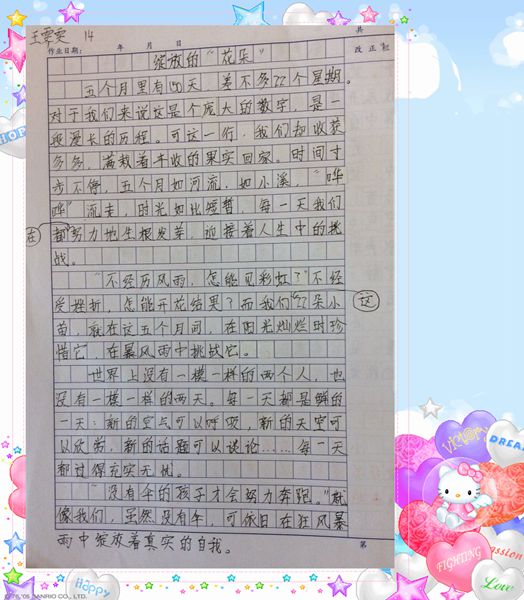 共
王雯雯 14
作业日期： 年 月 日 改正栏
绽放的“花朵”
五个月里有150天，差不多22个星期。
对于我们来说这是个庞大的数字，是一
段漫长的历程。可这一行，我们却收获
多多，满载着丰收的果实回家。时间寸
步不停，五个月如河流，如小溪，“哗
哗”流走，时光如此短暂，每一天我们
在都努力地生根发芽，迎接着人生中的挑
战。
“不经历风雨，怎能见彩虹？”不经
受挫折，怎能开花结果？而我们这22朵小
苗，就在这五个月间，在阳光灿烂时珍
惜它，在暴风雨中挑战它。
世界上没有一模一样的两个人，也
没有一模一样的两天。每一天都是鲜的
一天：新的空气可以呼吸，新的天空可
以欣赏，新的话题可以谈论……每一天
都过得充实无忧。
“没有伞的孩子才会努力奔跑。”就
像我们，虽然没有伞，可依旧在狂风暴
雨中绽放着真实的自我。
第
HOPE
Victory
DREAM
Passion
FIGHTING
Love
Happy
SANRIO CO., LTD.